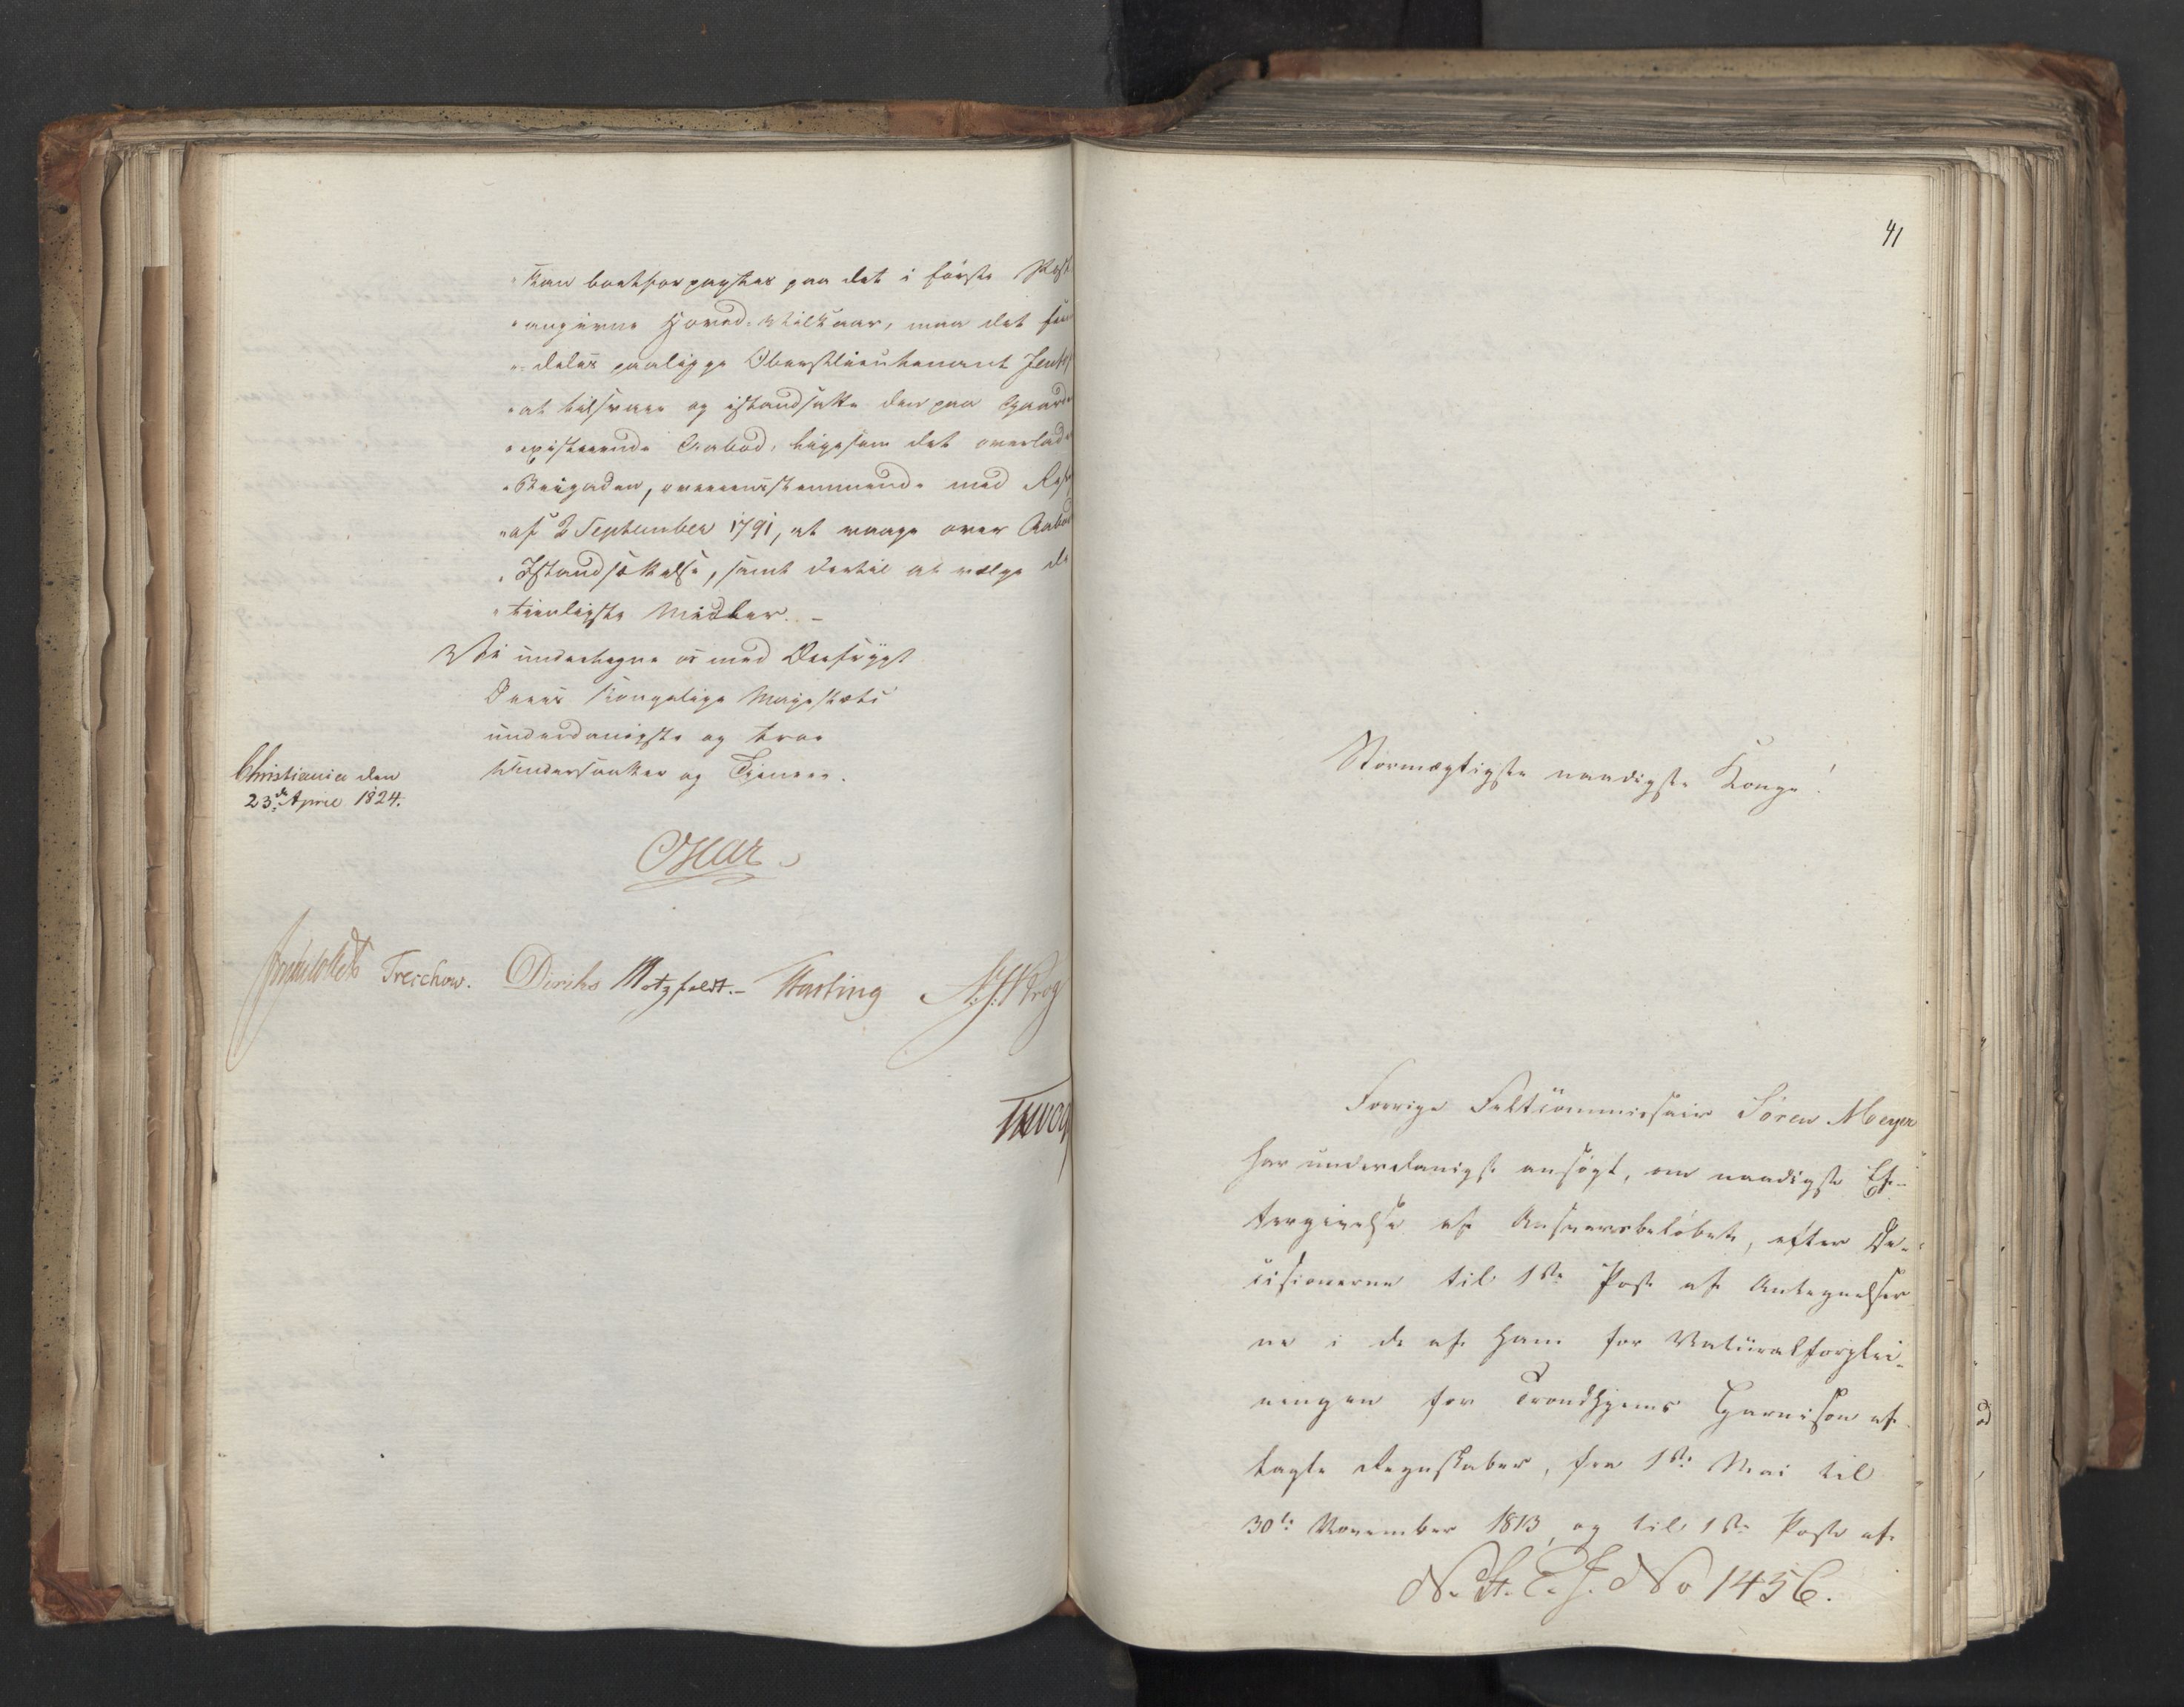 "kan bortforpagtes paa det i første Post
"angivne Hoved-Vilkaar, maa det frem
"deles paaligge Oberstlieutenant Jenss
"at tilsvare og istandsætte den paa Gaarden
"existerende Aabod, ligesom det overlades
"Brigaden, overeensstemmende med Resol
"af 2 September 1791, at vaage over Aabod
"Istandsættelse, samt dertil at vælge de
"tienligste Midler. -
Vi undertegne os med Ærefrygt
Deres Kongelige Majestæts
underdanigste og troe
Undersaatter og Tjenere.
Christiania den
23de April 1824.
Oscar
Treschow. Diriks Motzfeldt.- Fasting
41
Stormægtigste naadigste Konge!
Forrige Feltcommissair Søren Meyer
har underdanigst ansøgt, om naadigste Ef-
tergivelse af Ansvarsbeløbet, efter De-
cisionerne til 1ste Post af Antegnelser
ne i de af ham for Naturalforplei-
ningen for Trondhjems Garnison af-
lagte Regnskaber, fra 1ste Mai til
30te November 1813, og til 1ste Post af
N. St. E. J. No 1456.